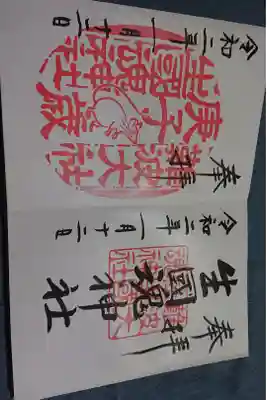 奉拝
生國魂神社
令和二年一月十二日
奉拝
難波大社
庚子歳
生國魂神社
令和二年一月十二日